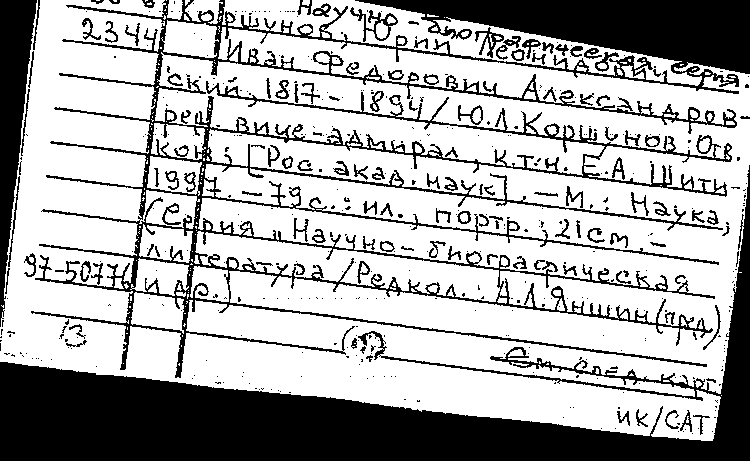 Научно-биографическая серия.
Коршунов, Юрий Леонидович
2344
Иван Федорович Александров-
ский, 1817-1894/Ю.Л.Коршунов; Отв.
ред. вице-адмирал, к.т.н. Е.А. Шити-
ков; [Рос. акад. наук]. — М.: Наука,
1997. — 79 с.: ил., портр.; 21 см. —
(Серия "Научно-биографическая
литература/Редкол.: А.Л.Яншин (пред)
97-50776 и др.).
13
См. след. карт
ИК/САТ